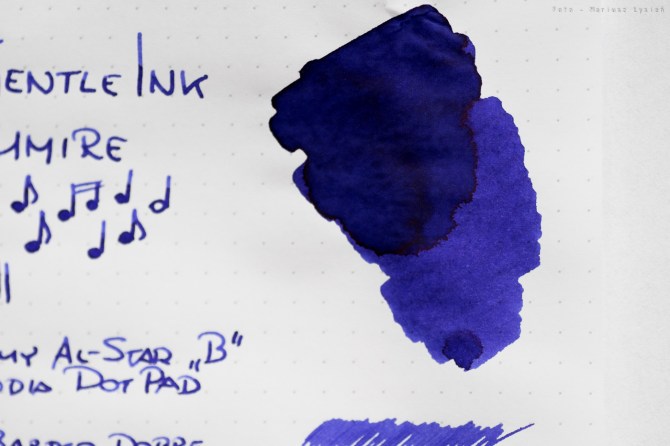 Foto - Mariusz Łysiak
ENTLE INK
MMIRE
MY AL-STAR „B"
ODIA DOT PAD